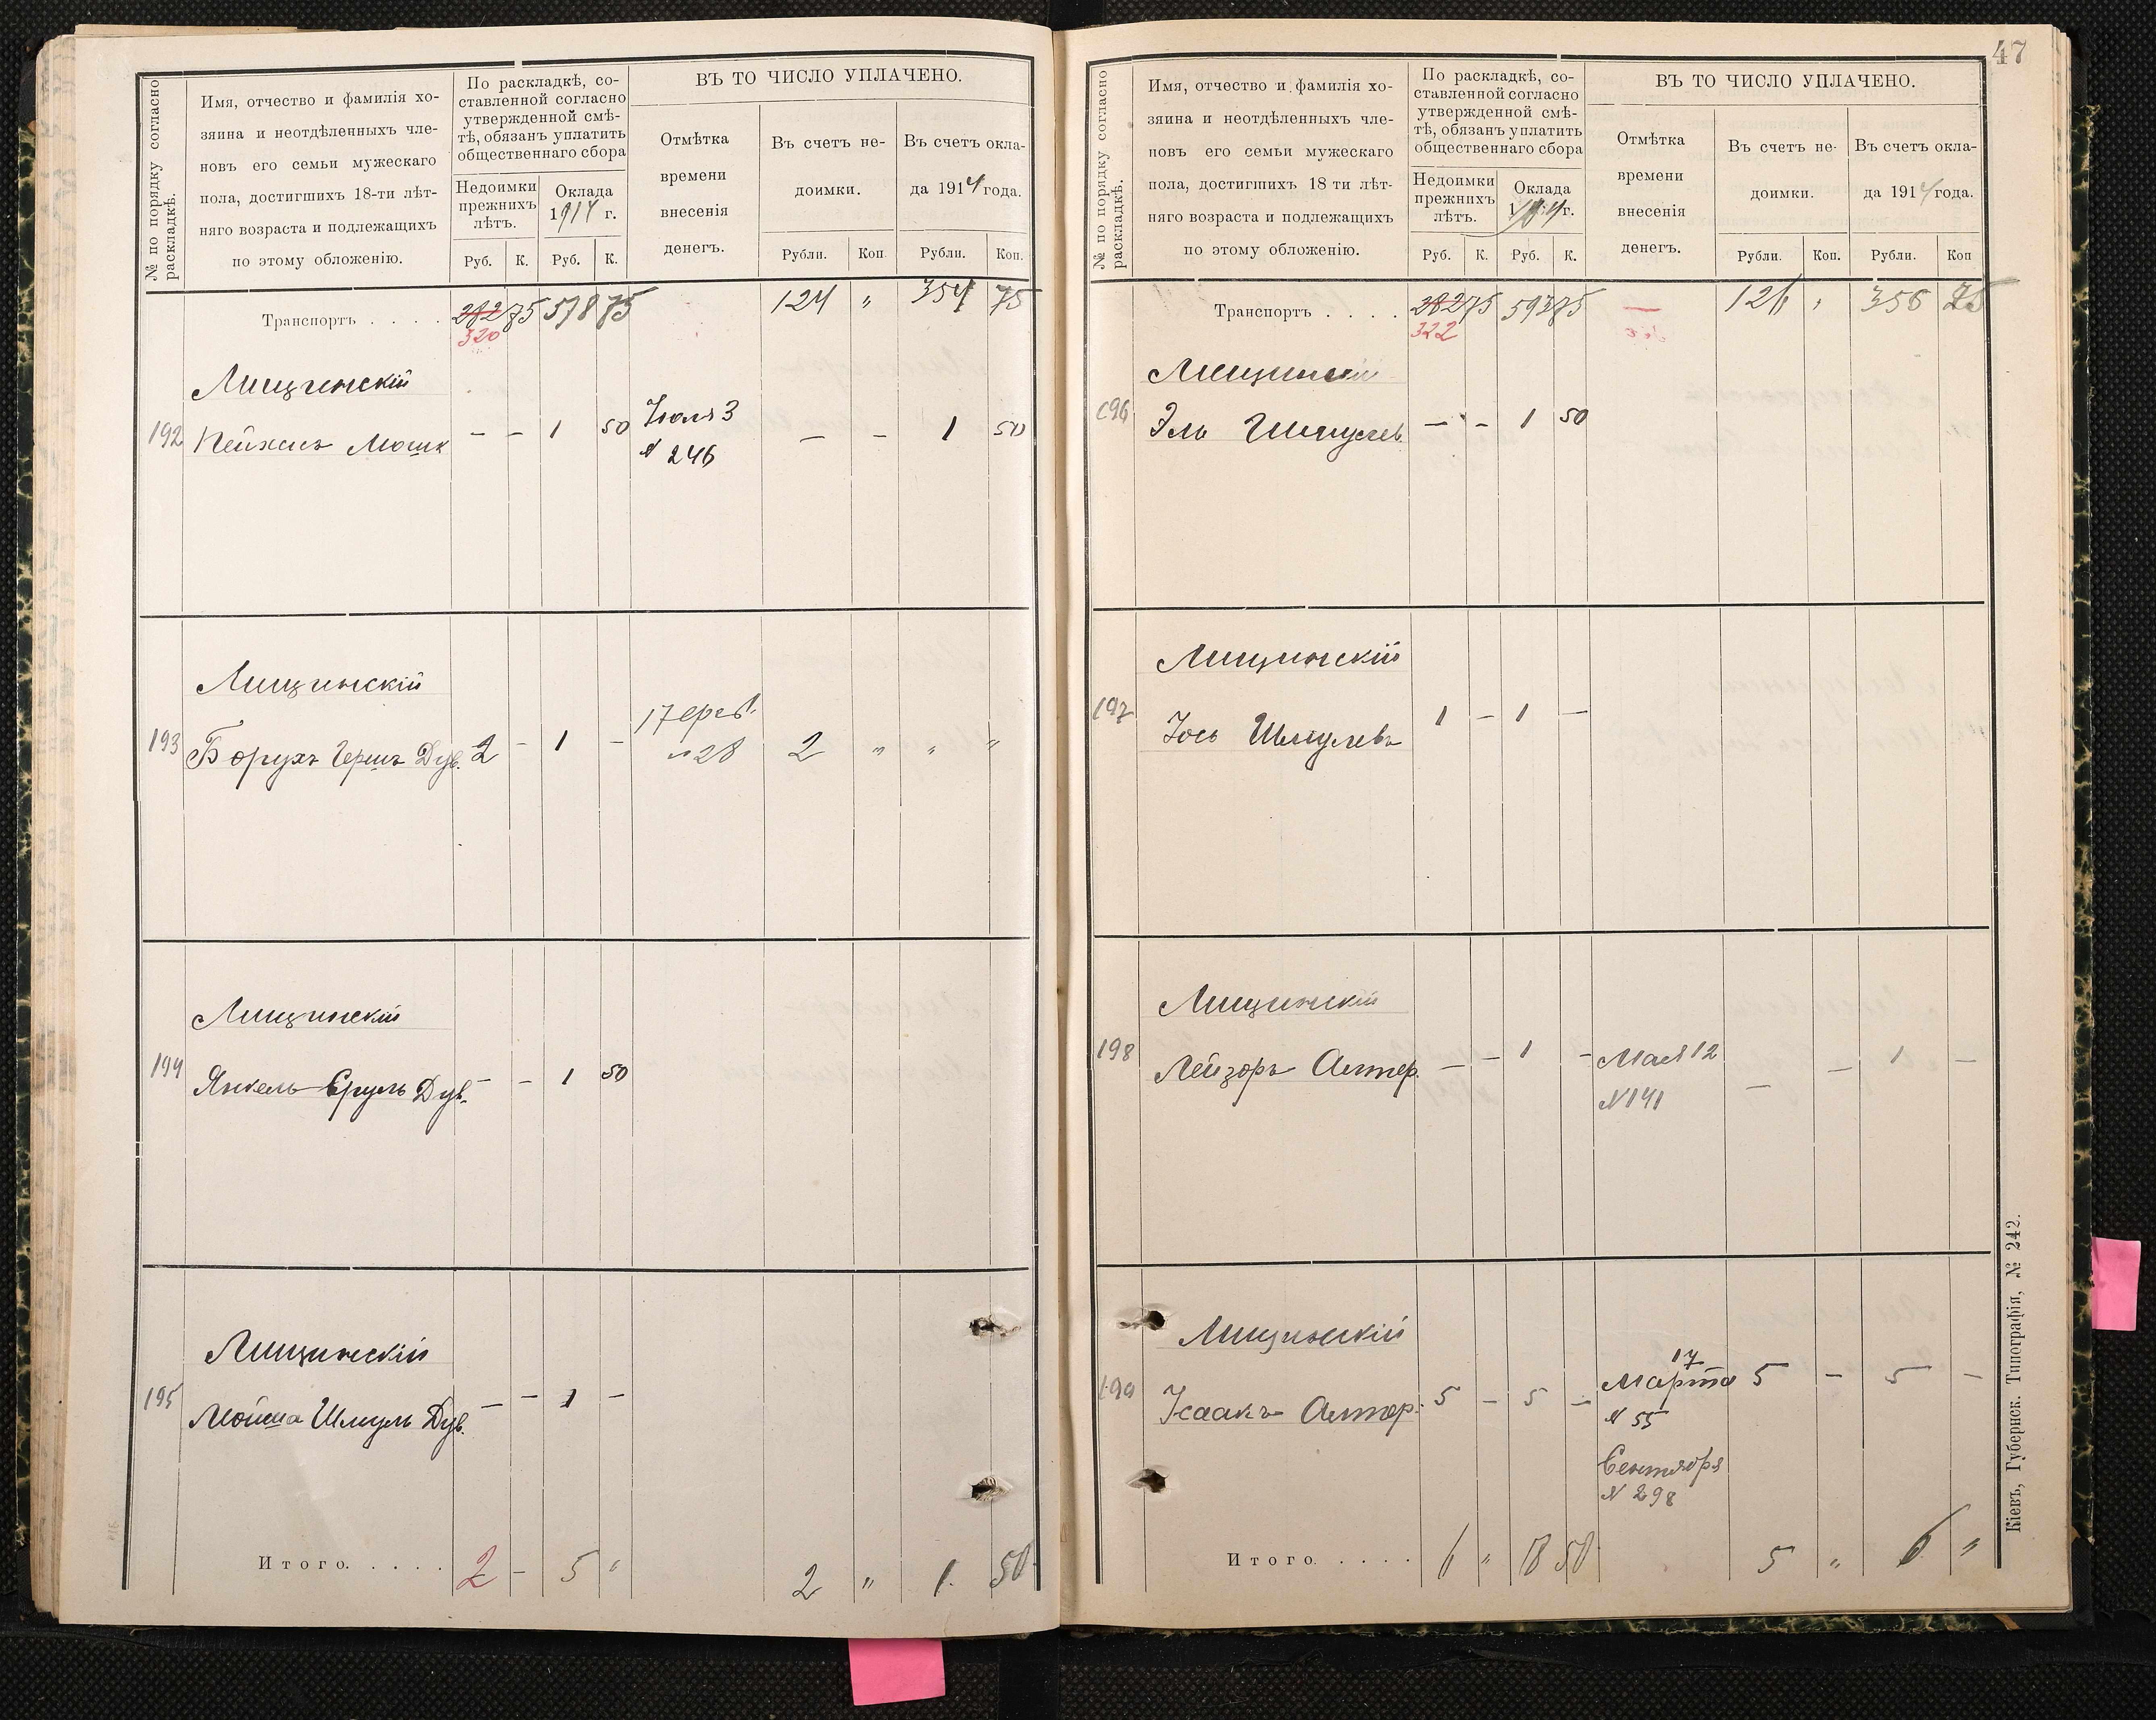 47
№ по порядку согласно
раскладкѣ.
Имя, отчество и фамилія хо-
зяина и неотдѣленныхъ чле-
новъ его семьи мужескаго
пола, достигшихъ 18-ти лѣт-
няго возраста и подлежащихъ
по этому обложенію.
По раскладкѣ, со-
ставленной согласно
утвержденной смѣ-
тѣ, обязанъ уплатить
общественнаго сбора
Недоимки
прежнихъ
лѣтъ.
Оклада
1914 г.
Руб. К. Руб. К.
ВЪ ТО ЧИСЛО УПЛАЧЕНО.
Отмѣтка
времени
внесенія
денегъ.
Въ счетъ не-
доимки.
Въ счетъ окла-
да 1914 года.
Рубли. Коп. Рубли. Коп.
Транспортъ . . . . 282 75 578 75 124 „ 354 75
320
Лищинскій
192 Пейхасъ Мошк — — 1 50 Іюля 3 — — 1 50
№ 246
Лищинскій
193 Борухъ Гершъ Дув. 2 — 1 — 17 февр. 2 „ „ „
№ 28
Лищинскій
194 Янкель-Сруль Дув. — — 1 50
Лищинскій
195 Мойша Шмуль Дув. — — 1 —
Итого. . . . . 2 — 5 „ 2 „ 1 50
№ по порядку согласно
раскладкѣ.
Имя, отчество и фамилія хо-
зяина и неотдѣленныхъ чле-
новъ его семьи мужескаго
пола, достигшихъ 18 ти лѣт-
няго возраста и подлежащихъ
по этому обложенію.
По раскладкѣ, со-
ставленной согласно
утвержденной смѣ-
тѣ, обязанъ уплатить
общественнаго сбора
Недоимки
прежнихъ
лѣтъ.
Оклада
1914 г.
Руб. К. Руб. К.
ВЪ ТО ЧИСЛО УПЛАЧЕНО.
Отмѣтка
времени
внесенія
денегъ.
Въ счетъ не-
доимки.
Въ счетъ окла-
да 1914 года.
Рубли. Коп. Рубли. Коп
Транспортъ . . . . 282 75 593 75 126 „ 356 25
322
Лищинскій
196 Эль Шмулев. — — 1 50
Лищинскій
197 Іось Шмулевъ 1 — 1 —
Лищинскій
198 Лейзоръ Алтер. — — 1 — Мая 12 — — 1 —
№ 141
Лищинскій
199 Исаакъ Алтер. 5 — 5 — 17 Марта 5 — 5 —
№ 55
Сентября
№ 298
Итого. . . . . 6 „ 50 5 „ 6 „
Кіевъ, Губернск. Типографія, № 242.